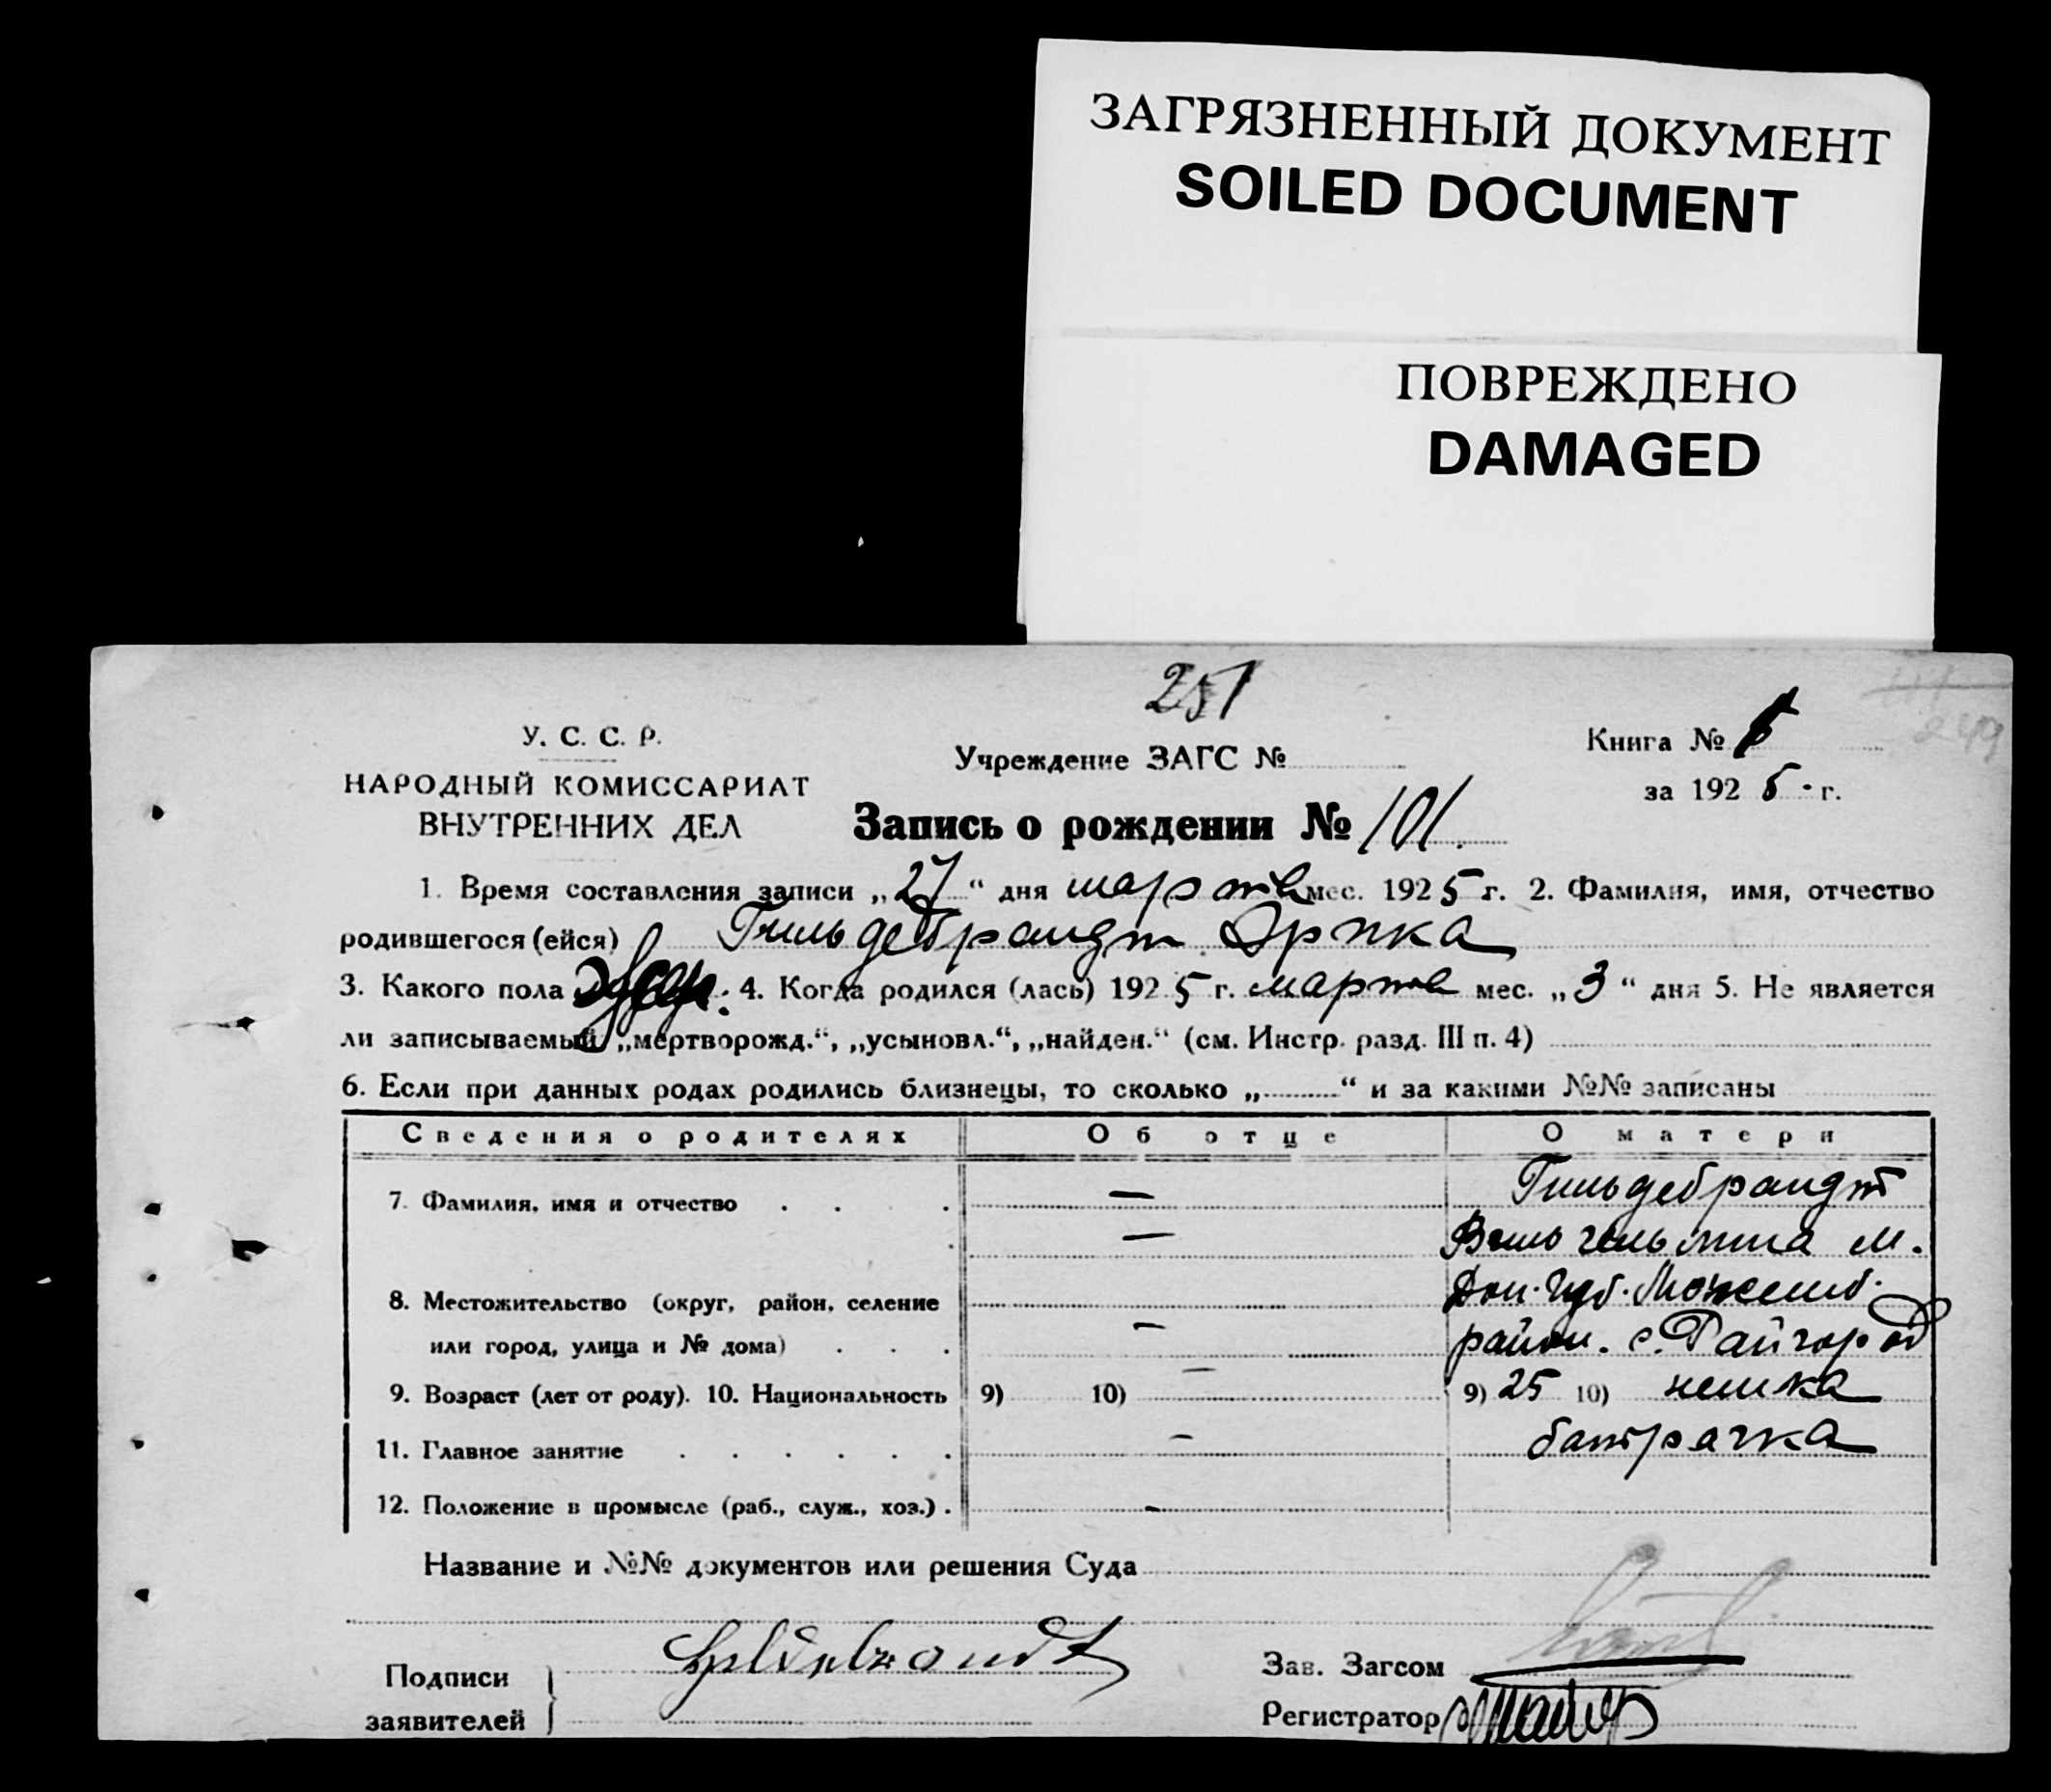 ЗАГРЯЗНЕННЫЙ ДОКУМЕНТ
SOILED DOCUMENT
ПОВРЕЖДЕНО
DAMAGED
251
249
У. С. С. Р.
НАРОДНЫЙ КОМИССАРИАТ
ВНУТРЕННИХ ДЕЛ
Учреждение ЗАГС №
Книга №
за 1925 г.
Запись о рождении № 101.
1. Время составления записи „27“ дня марта мес. 1925 г. 2. Фамилия, имя, отчество
родившегося (ейся) Гильдебрандт Эрика
3. Какого пола 4. Когда родился (лась) 1925 г. марта мес. „3“ дня 5. Не является
ли записываемый „мертворожд.“, „усыновл.“, „найден.“ (см. Инстр. разд. III п. 4)
6. Если при данных родах родились близнецы, то сколько „..........“ и за какими №№ записаны
Сведения о родителях Об отце О матери
7. Фамилия, имя и отчество — Гильдебрандт
— Вильгельмина М.
8. Местожительство (округ, район, селение Дон. Губ.
или город, улица и № дома) — район. с. Райгород
9. Возраст (лет от роду). 10. Национальность 9) 10) — 9) 25 10) немка
11. Главное занятие — батрачка
12. Положение в промысле (раб., служ., хоз.) . -
Название и №№ документов или решения Суда
Подписи
заявителей
Hildebrandt
Зав. Загсом
Регистратор